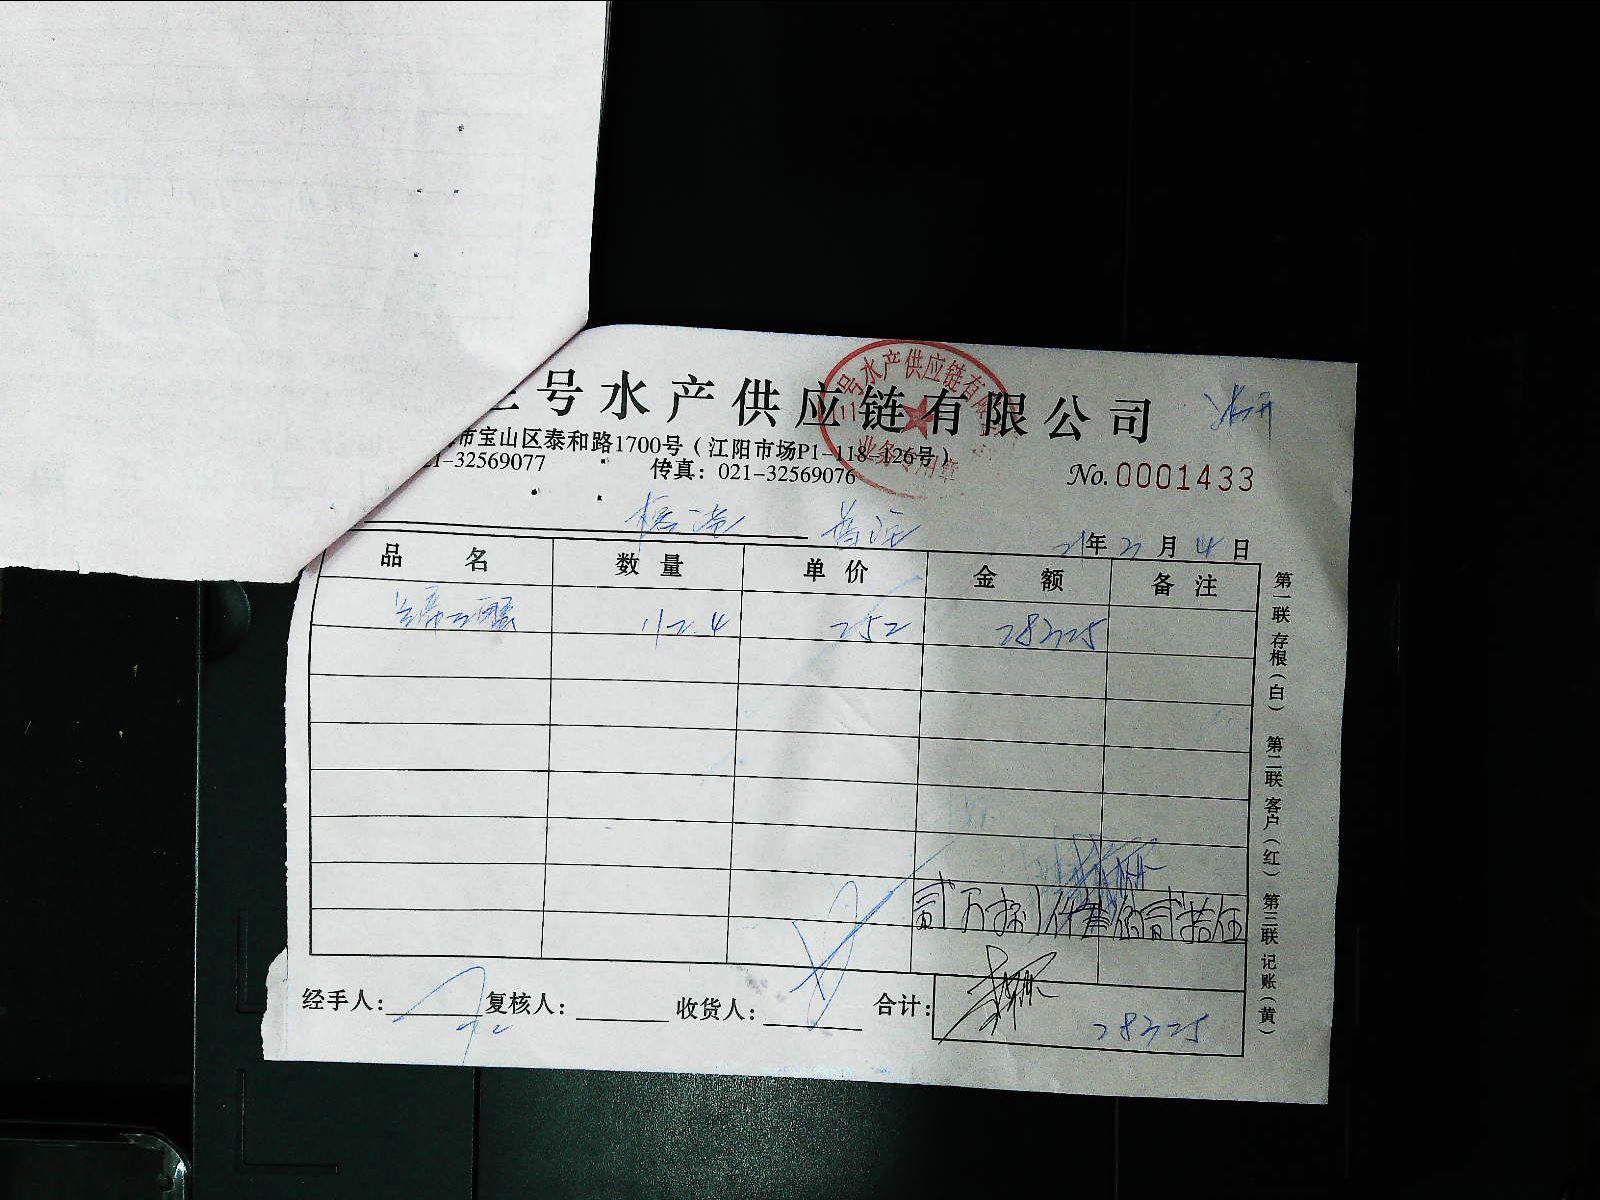 三号水产供应链有限公司
市宝山区泰和路1700号（江阳市场P1-118-126号）
21-32569077 传真：021-32569076
No.0001433
号水产供应链有限
业务专用章
21年2月4日
品名 数量 单价 金额 备注
112.4 252 28325
贰万捌仟叁佰贰拾伍
经手人： 复核人： 收货人： 合计：28325
第一联 存根（白） 第二联 客户（红） 第三联 记账（黄）